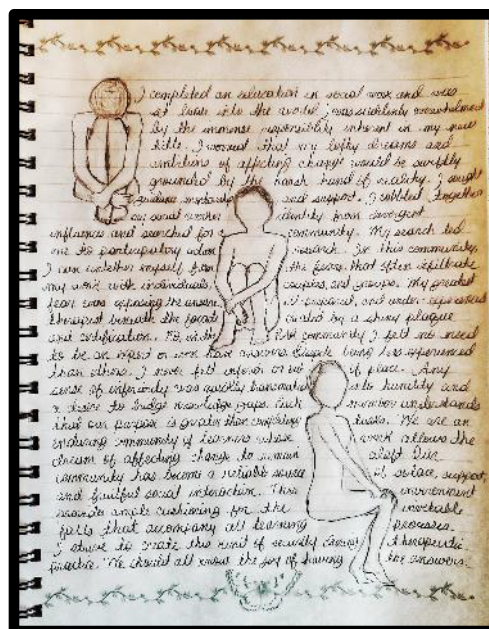 I completed an education in social work and was
set loose into the world. I was suddenly overwhelmed
by the immense responsibility inherent in my new
title. I worried that my lofty dreams and
ambitions of affecting change would be swiftly
grounded by the harsh hand of reality. I sought
guidance, mentorship and support. I cobbled together
a social worker identity from divergent
influences and searched for a community. My search led
me to participatory action research. In this community,
I can untether myself from the fears that often infiltrate
my work with individuals, couples, and groups. My greatest
fear was exposing the unsure, and under
therapist beneath the facade created by a shiny plaque
and certification. Yet, in the PAR community I felt no need
to be an expert or even have answers. Despite being less experienced
than others, I never felt inferior or out of place. Any
sense of inferiority was quickly into humility and
a desire to bridge knowledge gaps. Each member understands
that our purpose is greater than completing tasks. We are an
enduring community of learners whose work allows the
dream of affecting change to remain aloft. Our
community has become a reliable source of solace, support,
and fruitful social interaction. This environment
provides ample cushioning for the inevitable
falls that accompany all learning processes.
I strive to create this kind of security therapeutic
practice. We should all know the joy of having the answers.